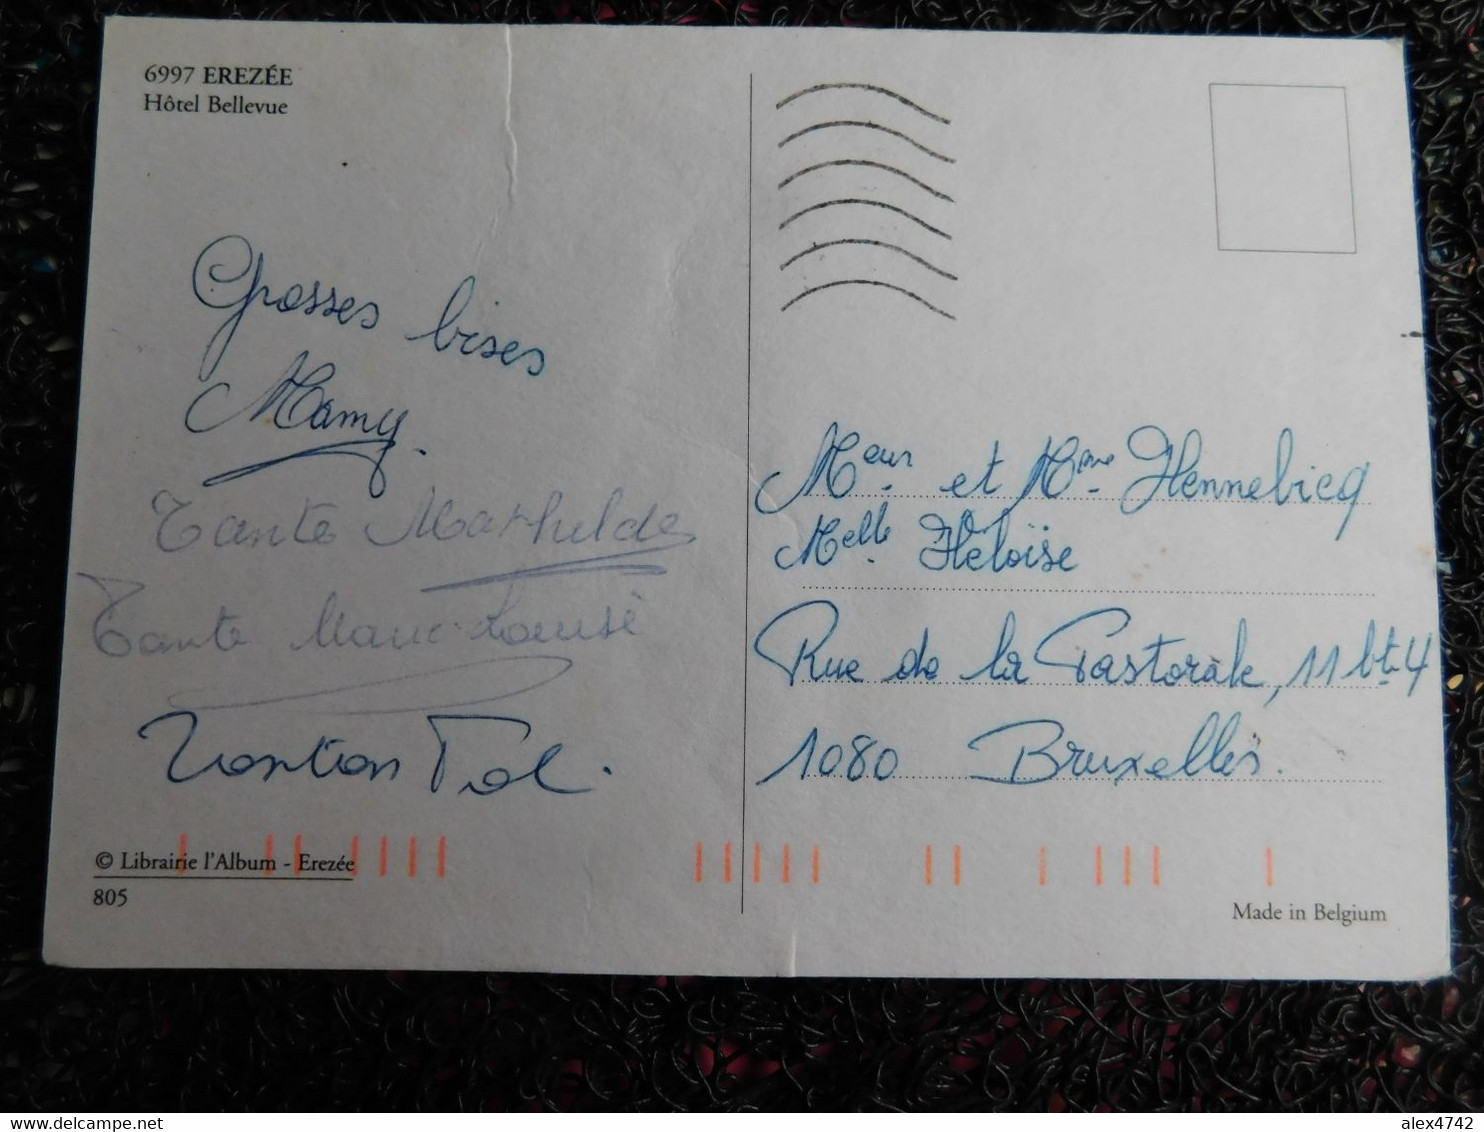 6997 EREZÉE
Hôtel Bellevue
Grosses bises
Mamy.
Tante Mathilde
Tante Marie-Louise
Tonton Pol.
© Librairie l'Album - Erezée
805
Meur et Mme Hennebicq
Melle Héloïse
Rue de la Pastorale, 11 bte 4
1080 Bruxelles.
Made in Belgium
alex4742